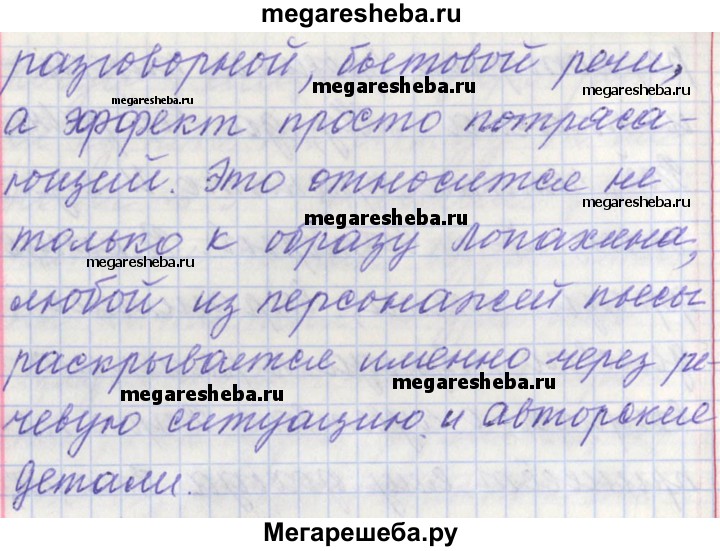 megaresheba.ru
разговорной, бытовой речи,
megaresheba.ru
megaresheba.ru
megaresheba.ru
а эффект просто потряса-
ющий. Это относится не
megaresheba.ru
только к образу Лопахина,
megaresheba.ru
любой из персонажей пьесы
раскрывается именно через ре-
megaresheba.ru
megaresheba.ru
чевую ситуацию и авторские
детали.
Мегарешеба.ру